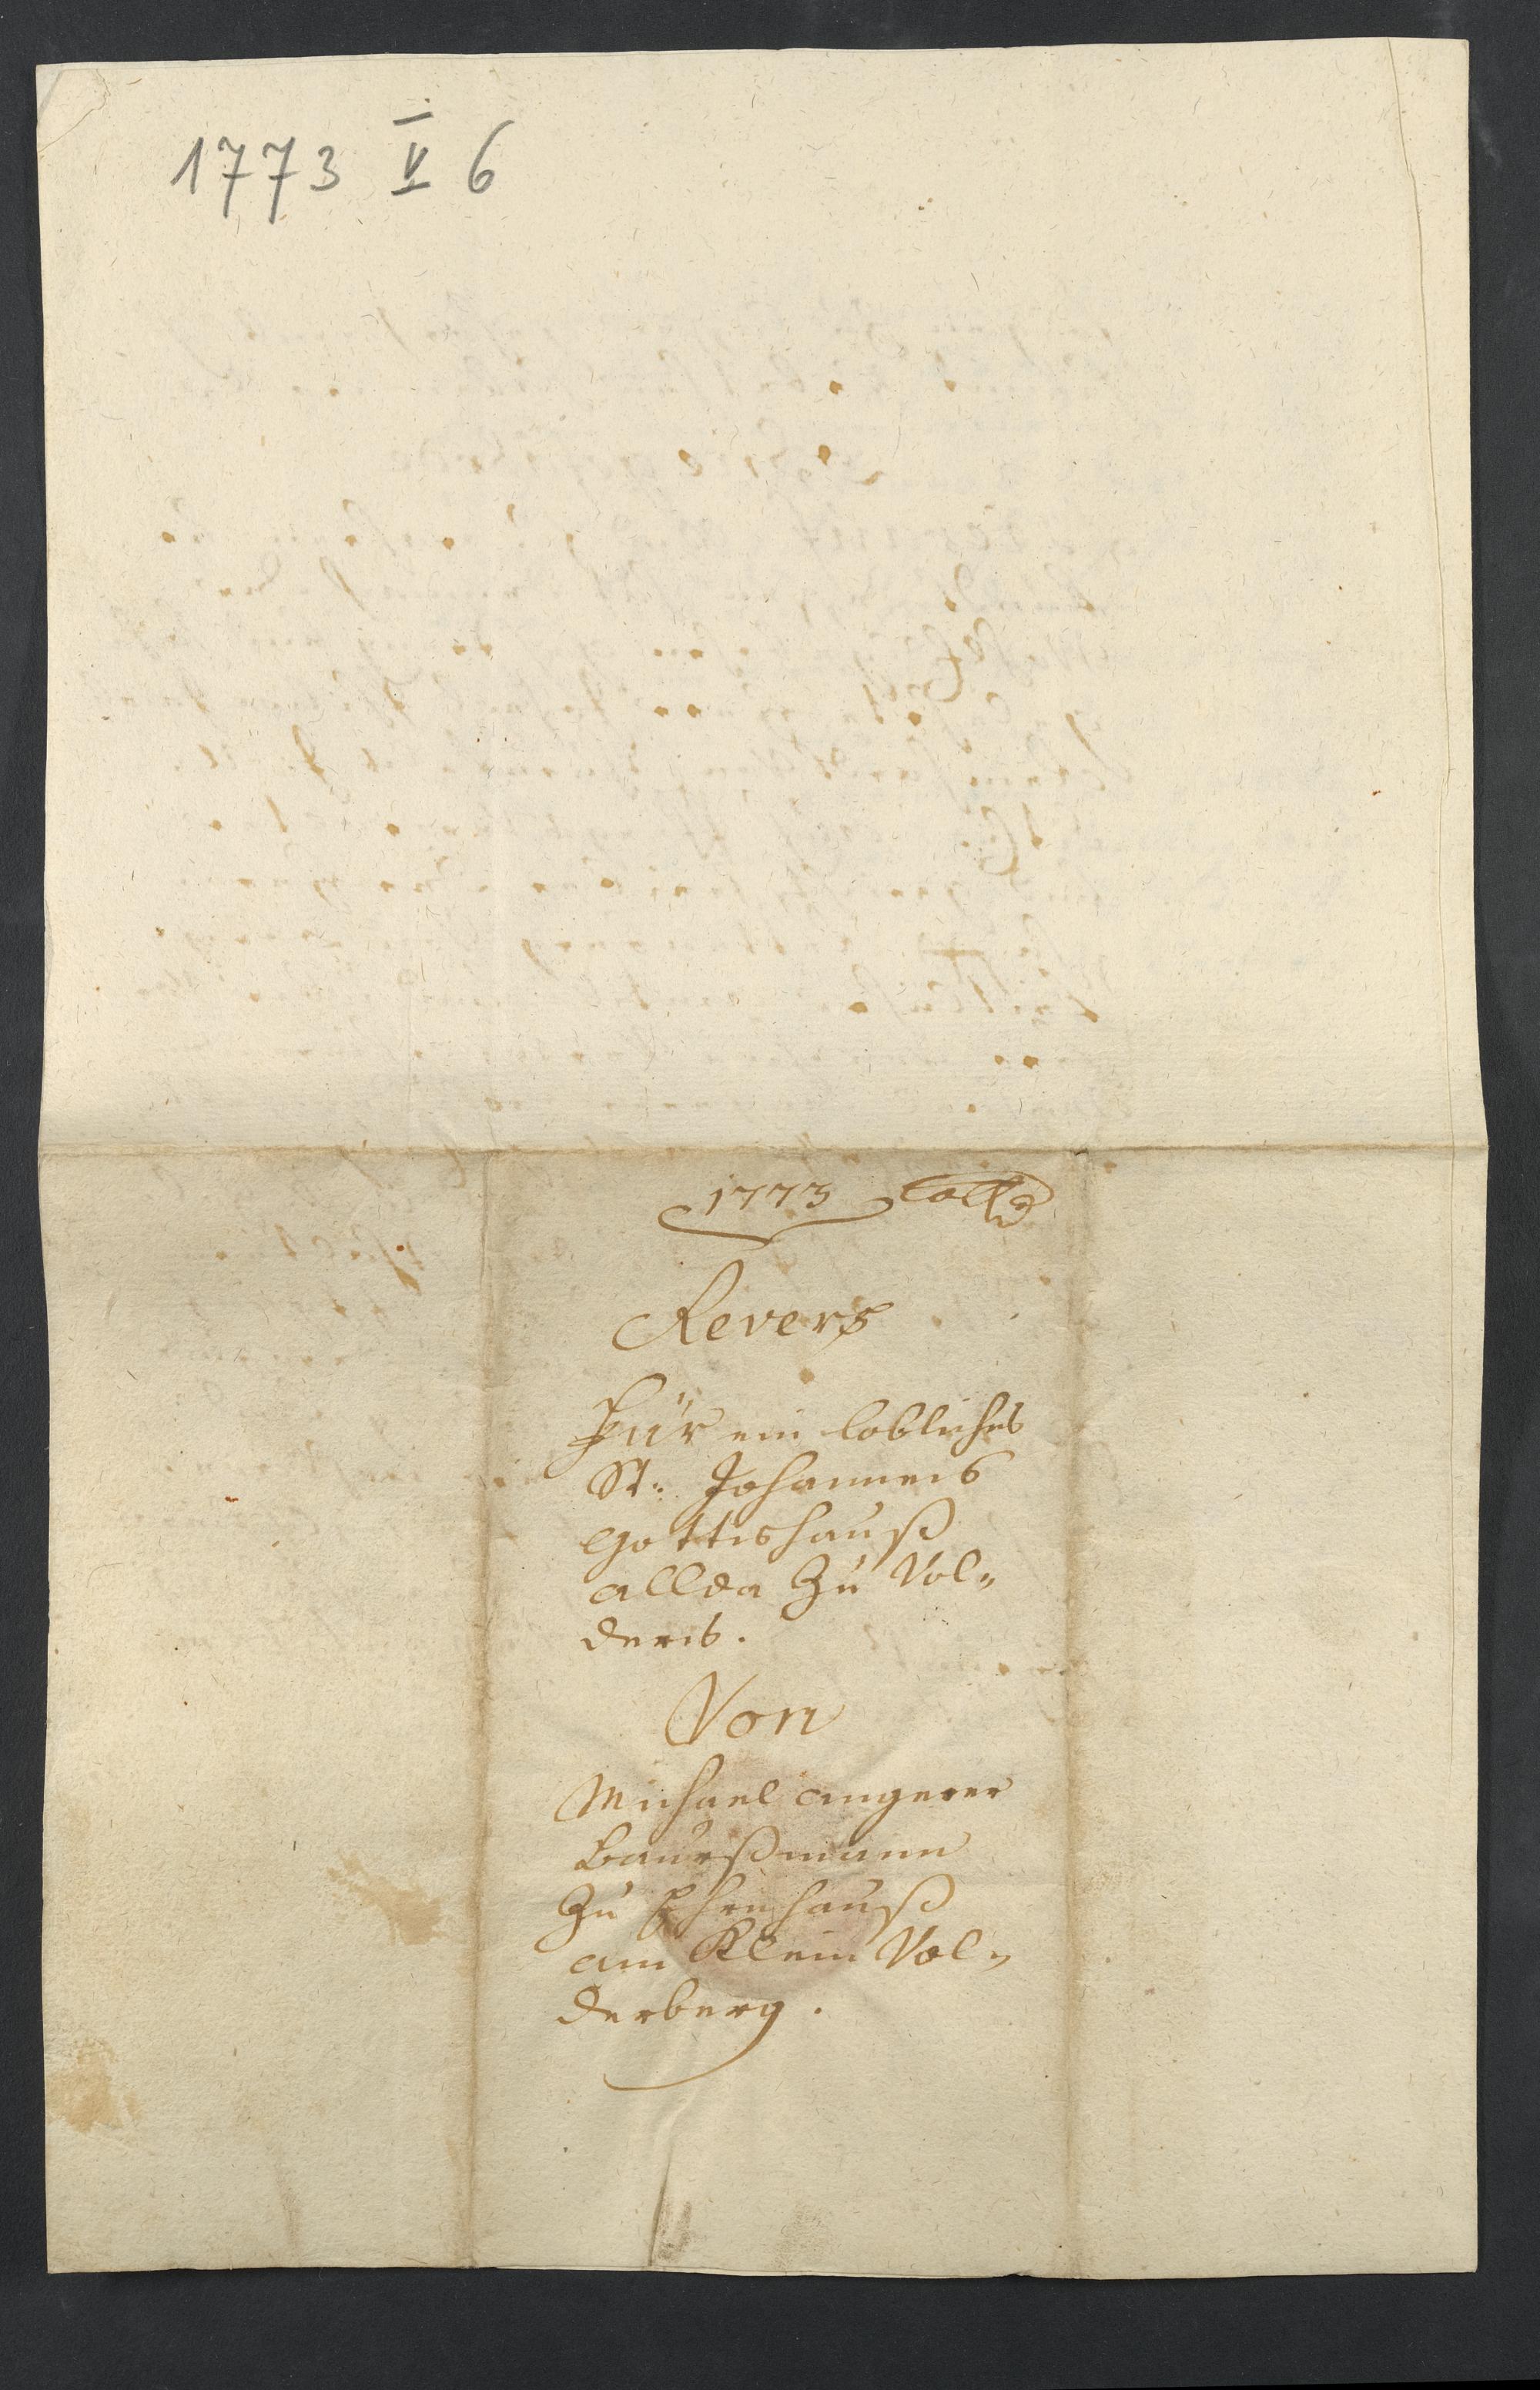 1773 V 6
1773 Coll
Revers
Für ein lobliches
St: Johannes
Gottishauß
allda Zu Vol„
ders.
Von
Michael angerer
Baurßmann
Zu Ehrnhauß
am Klein Vol„
derberg.